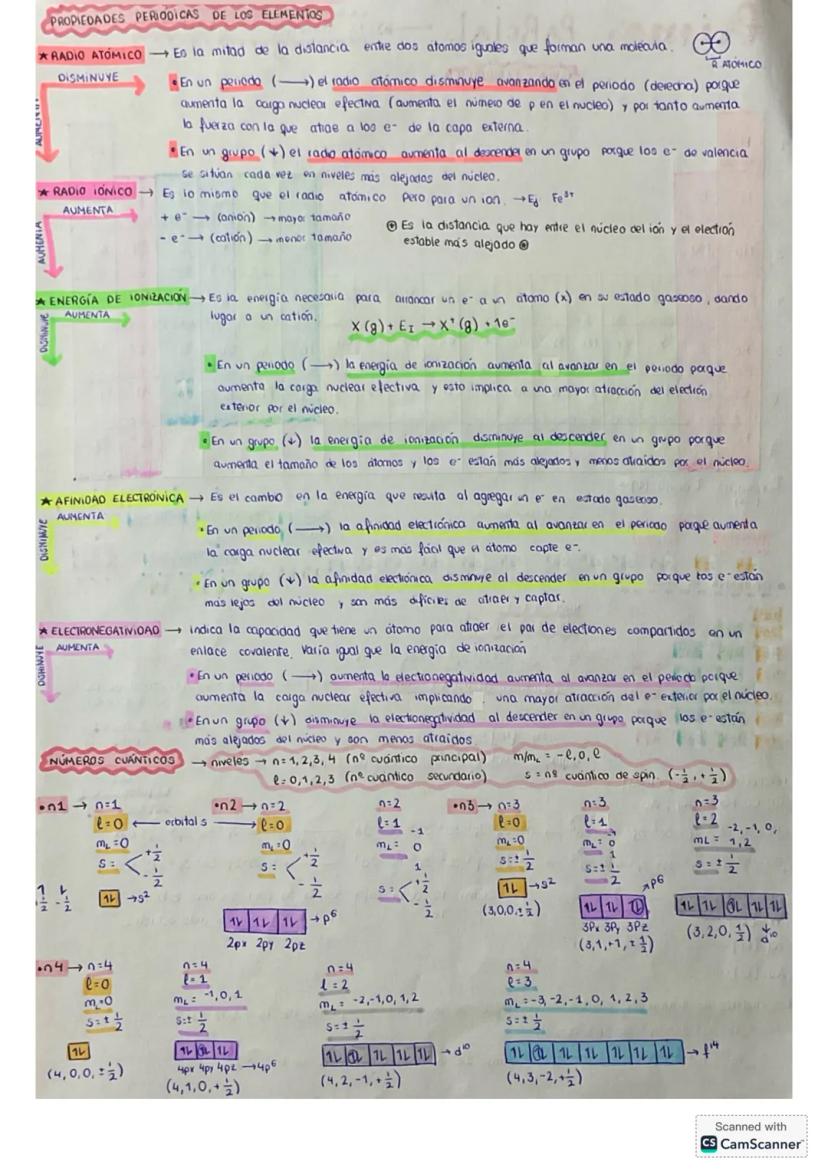 PROPIEDADES PERIÓDICAS DE LOS ELEMENTOS
★ RADIO ATÓMICO → Es la mitad de la distancia entre dos atomos iguales que forman una molécula.
R ATÓMICO
DISMINUYE
AUMENTA
• En un periodo (→) el radio atómico disminuye avanzando en el periodo (derecha) porque
aumenta la carga nuclear efectiva (aumenta el número de p en el nucleo) y por tanto aumenta
la fuerza con la que atrae a los e- de la capa externa.
• En un grupo (↓) el radio atómico aumenta al descender en un grupo porque los e- de valencia
se sitúan cada vez en niveles más alejados del núcleo.
★ RADIO IÓNICO → Es lo mismo que el radio atómico pero para un ion. → Ej Fe³⁺
AUMENTA
AUMENTA
+ e⁻ → (anión) → mayor tamaño
- e⁻ → (catión) → menor tamaño
Es la distancia que hay entre el núcleo del ión y el electrón
estable más alejado
★ ENERGÍA DE IONIZACIÓN → Es la energía necesaria para arrancar un e⁻ a un átomo (x) en su estado gaseoso, dando
AUMENTA
DISMINUYE
lugar a un catión.
X (g) + E_I → X⁺ (g) + 1e⁻
• En un periodo (→) la energía de ionización aumenta al avanzar en el periodo porque
aumenta la carga nuclear efectiva y esto implica a una mayor atracción del electrón
exterior por el núcleo.
• En un grupo (↓) la energía de ionización disminuye al descender en un grupo porque
aumenta el tamaño de los átomos y los e⁻ están más alejados y menos atraidos por el núcleo.
★ AFINIDAD ELECTRÓNICA → Es el cambio en la energía que resulta al agregar un e⁻ en estado gaseoso.
AUMENTA
DISMINUYE
• En un periodo, (→) la afinidad electrónica aumenta al avanzar en el periodo porque aumenta
la carga nuclear efectiva y es mas fácil que el átomo capte e-.
• En un grupo (↓) la afinidad electrónica disminuye al descender en un grupo porque los e- están
más lejos del núcleo y son más difíciles de atraer y captar.
★ ELECTRONEGATIVIDAD → indica la capacidad que tiene un átomo para atraer el par de electrones compartidos en un
AUMENTA
DISMINUYE
enlace covalente. Varía igual que la energía de ionización
• En un periodo (→) aumenta la electronegatividad aumenta al avanzar en el periodo porque
aumenta la carga nuclear efectiva implicando una mayor atracción del e⁻ exterior por el núcleo.
• En un grupo (↓) disminuye la electronegatividad al descender en un grupo porque los e⁻ están
más alejados del núcleo y son menos atraidos
NÚMEROS CUÁNTICOS → niveles → n=1,2,3,4 (nº cuántico principal) m/mL = -ℓ,0,ℓ
ℓ=0,1,2,3 (nº cuantico secundario) s = nº cuántico de spin (-1/2,+1/2)
• n1 → n=1
ℓ=0 ← orbital s →
mL=0
s= +1/2 -1/2
1 1
1/2 -1/2
1L → s²
• n2 → n=2
ℓ=0
mL=0
s= +1/2 -1/2
n=2
ℓ=1
mL= -1 0 1
s= +1/2 -1/2
1L 1L 1L → p⁶
2px 2py 2pz
• n3 → n=3
ℓ=0
mL=0
s=±1/2
1L → s²
(3,0,0,±1/2)
n=3
ℓ=1
mL= -1 0 1
s=±1/2
1L 1L 1L → p⁶
3Px 3Py 3Pz
(3,1,+1,±1/2)
n=3
ℓ=2
mL= -2,-1,0,1,2
s=±1/2
1L 1L 1L 1L 1L
(3,2,0,1/2) ↓ d¹⁰
• n4 → n=4
ℓ=0
mL=0
s=±1/2
1L
(4,0,0,±1/2)
n=4
ℓ=1
mL= -1,0,1
s=±1/2
1L 1L 1L
4px 4py 4pz → 4p⁶
(4,1,0,+1/2)
n=4
l=2
mL= -2,-1,0,1,2
s=±1/2
1L 1L 1L 1L 1L → d¹⁰
(4,2,-1,+1/2)
n=4
ℓ=3
mL=-3,-2,-1,0,1,2,3
s=±1/2
1L 1L 1L 1L 1L 1L 1L → f¹⁴
(4,3,-2,+1/2)
Scanned with
CS CamScanner